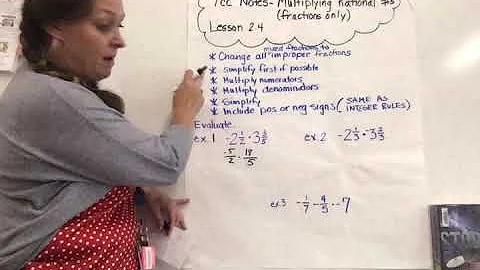 TCC Notes- Multiplying rational #s
(fractions only)
Lesson 2.4
mixed fractions to
* Change all improper fractions
* simplify first if possible
* Multiply numerators
* Multiply denominators
* Simplify
* Include pos or neg signs (SAME AS INTEGER RULES)
Evaluate
ex. 1 -2 1/2 · 3 3/5
-5/2 · 18/5
ex. 2 -2 1/3 · 3 2/3
ex. 3 -1/7 · -4/5 · -7